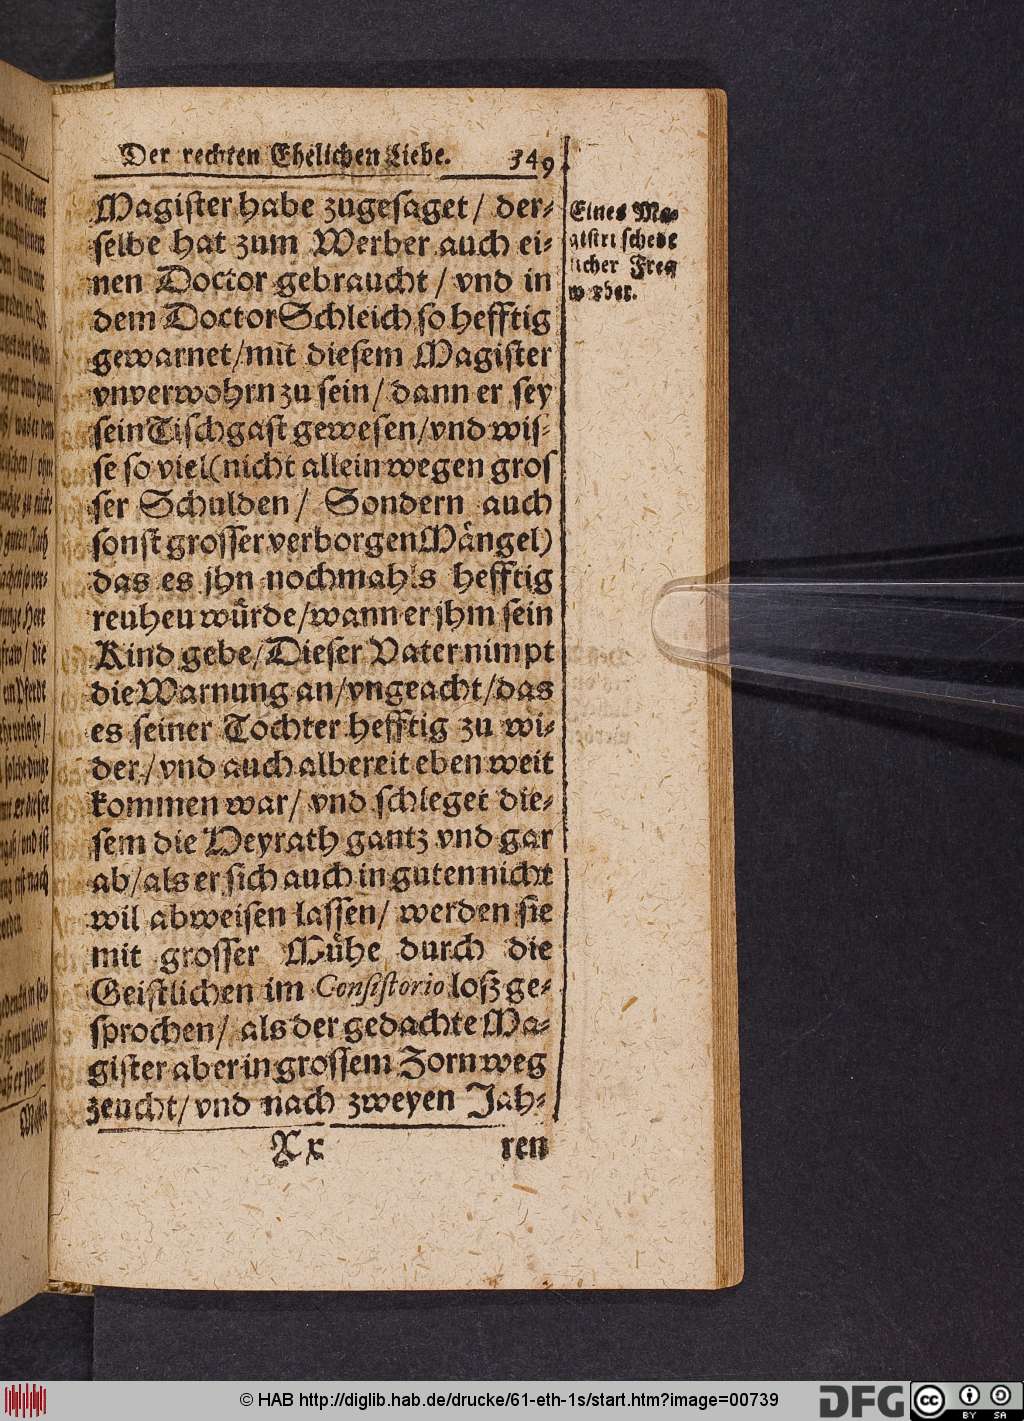 Der rechten Ehelichen Liebe. 349
Magiſter habe zugeſaget/ der-
ſelbe hat zum Werber auch ei-
nen Doctor gebraucht/ vnd in
dem Doctor Schleich ſo hefftig
gewarnet/mit dieſem Magiſter
vnverwohrn zu ſein/ dann er ſey
ſein Tiſchgaſt geweſen/vnd wiſ-
ſe ſo viel(nicht allein wegen groſ
ſer Schulden/ Sondern auch
ſonſt groſſer verborgen Mängel)
das es jhn nochmahls hefftig
reuheu würde/wann er jhm ſein
Kind gebe/Dieſer Vater nimpt
die Warnung an/vngeacht/das
es ſeiner Tochter hefftig zu wi-
der/vnd auch albereit eben weit
kommen war/ vnd ſchleget die-
ſem die Heyrath gantz vnd gar
ab/als er ſich auch in guten nicht
wil abweiſen laſſen/ werden ſie
mit groſſer Mühe durch die
Geiſtlichen im Conſiſtorio loß ge-
ſprochen/ als der gedachte Ma-
giſter aber in groſſem Zorn weg
zeucht/ vnd nach zweyen Jah-
Xx ren
Eines Ma-
giſtri ſched
licher Frey
werber.
© HAB http://diglib.hab.de/drucke/61-eth-1s/start.htm?image=00739
DFG
cc BY SA